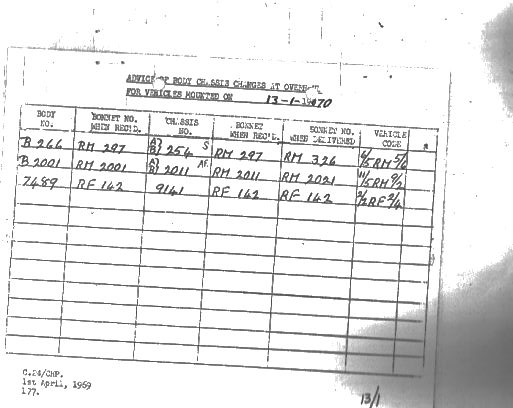 ADVICE OF BODY CHASSIS CHANGES AT OVERHAUL
FOR VEHICLES MOUNTED ON 13-1-1970
BODY NO. BONNET NO. WHEN REC'D. CHASSIS NO. BONNET WHEN REC'D. BONNET NO. WHEN DELIVERED VEHICLE CODE *
B 266 RM 297 A) B) 254 S RM 297 RM 326 6/5RM 5/6
B 2001 RM 2001 A) B) 2011 AF RM 2011 RM 2021 11/5RM 9/2
7489 RF 142 9141 RF 142 RF 142 2/2RF 2/4
C.24/CHP.
1st April, 1969
177.
13/1